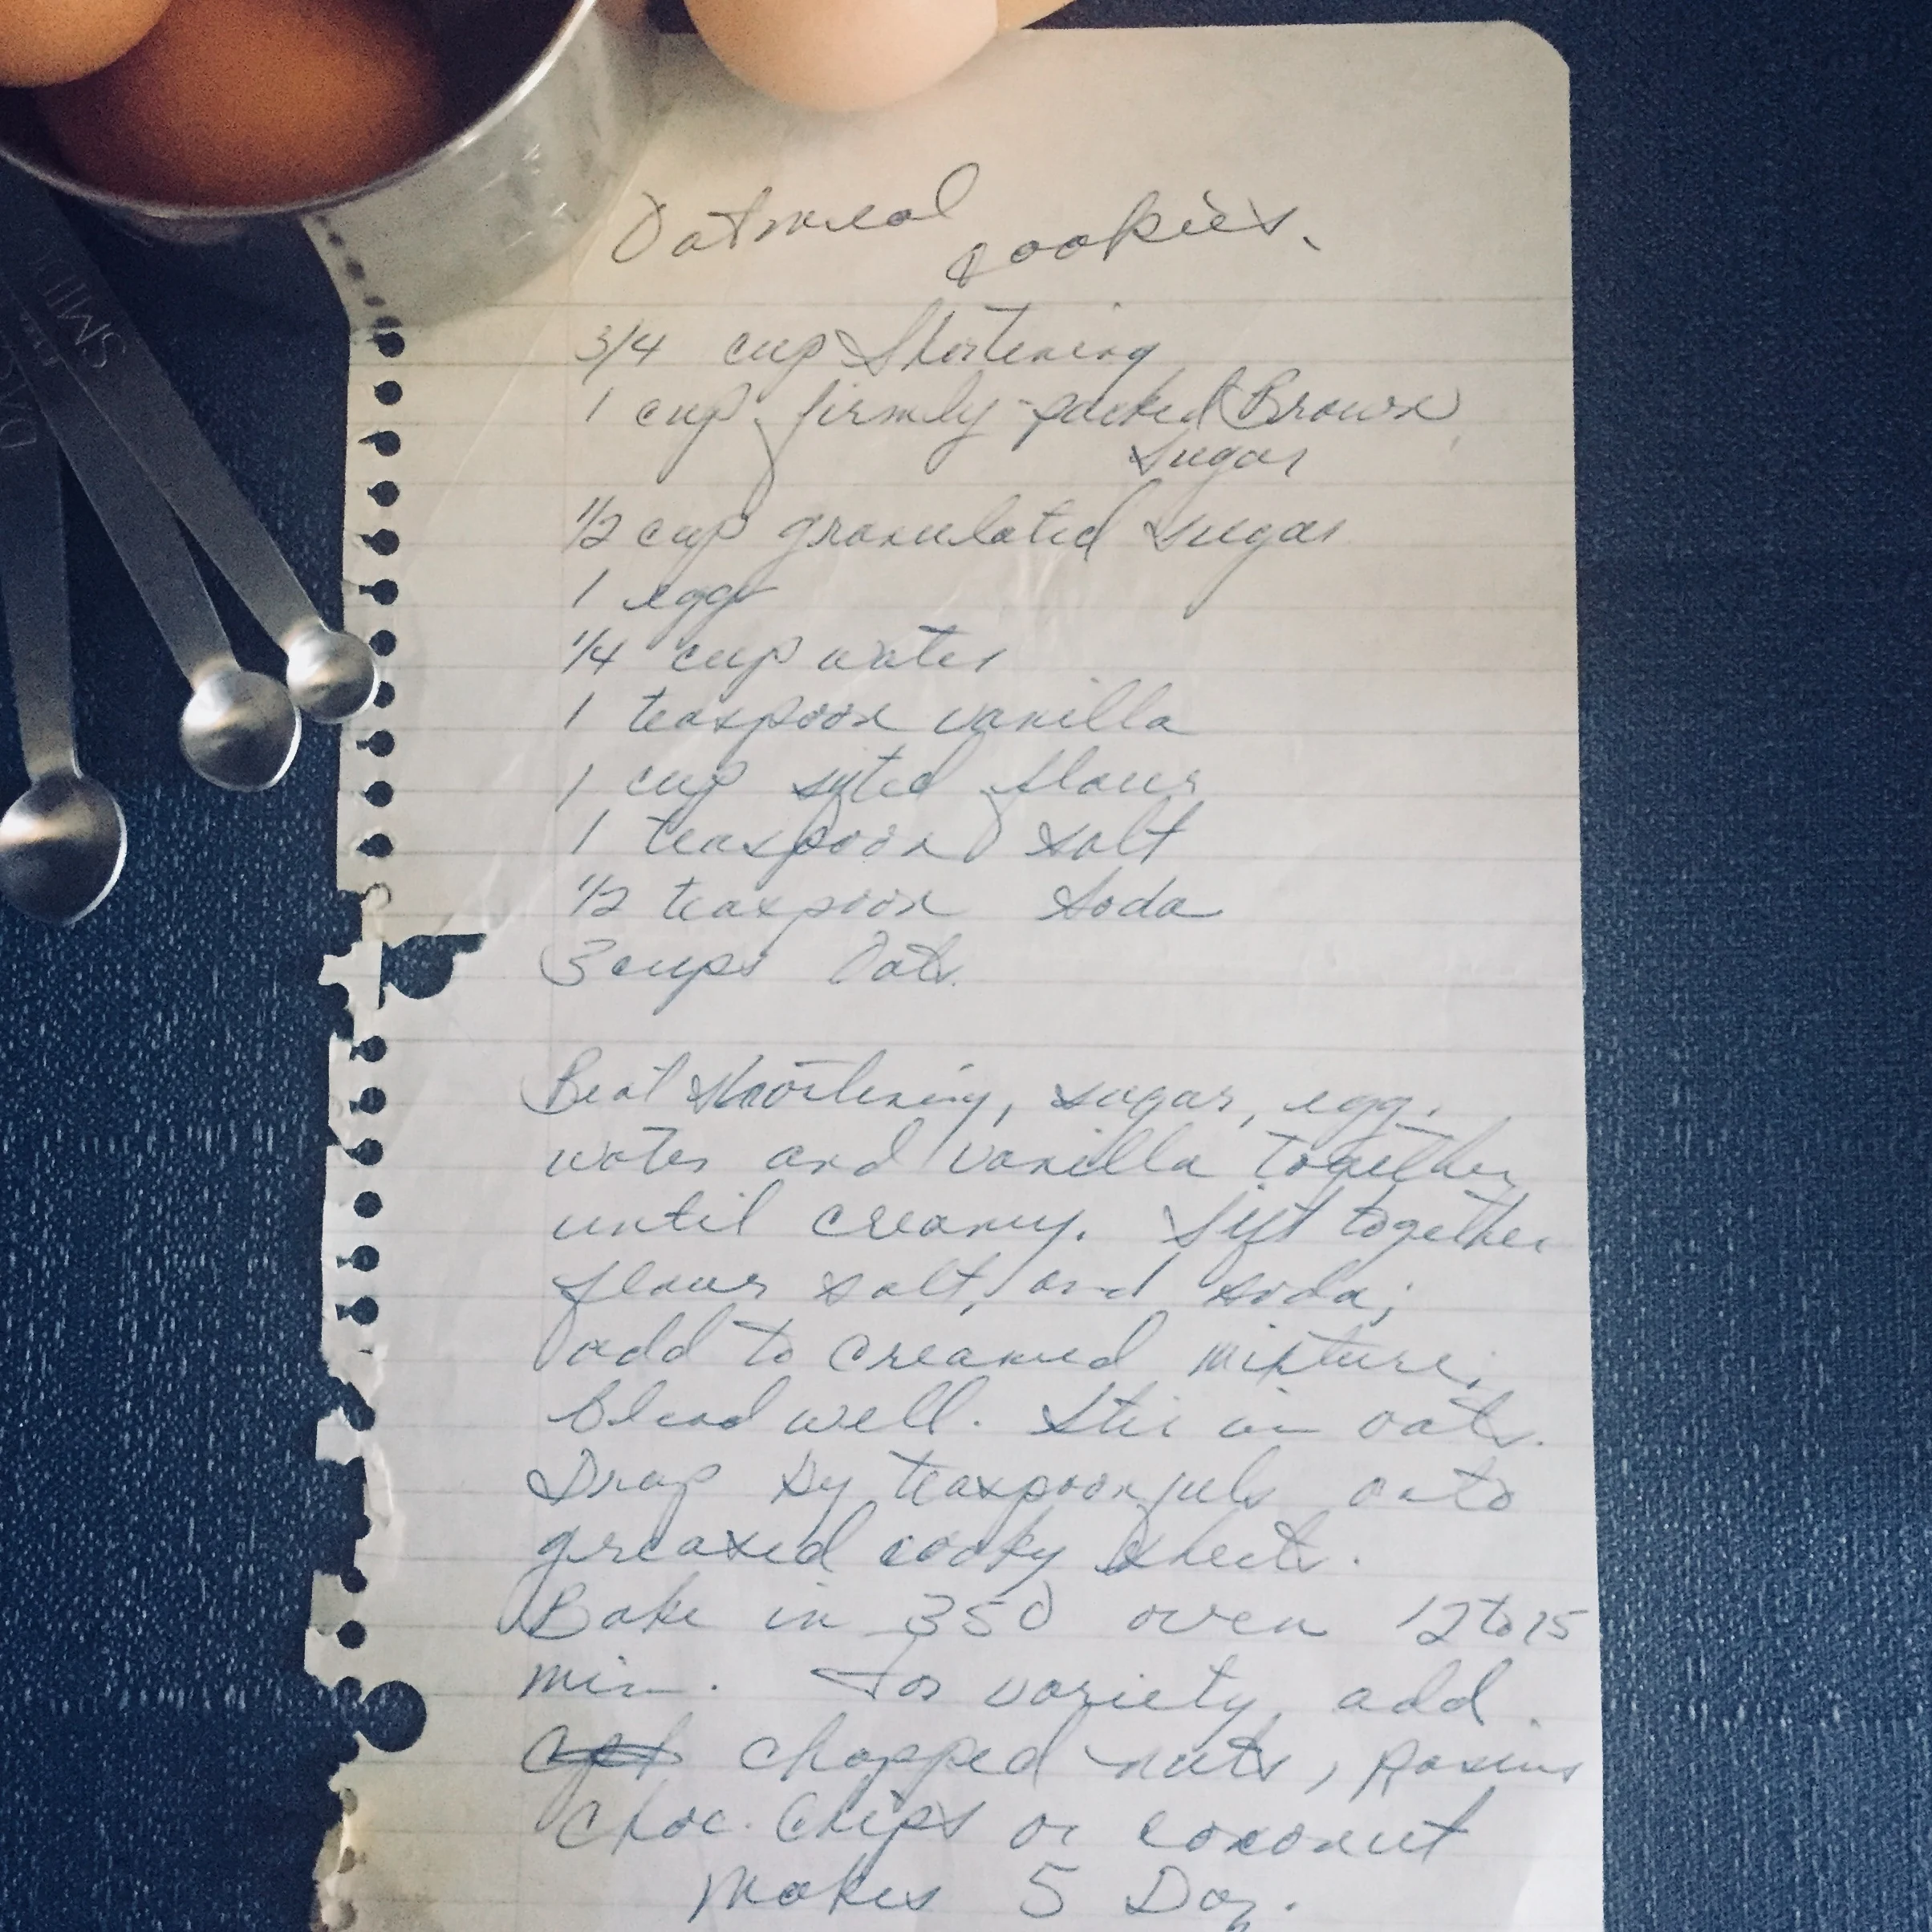 Oatmeal cookies.
3/4 cup Shortening
1 cup firmly-packed Brown
Sugar
1/2 cup granulated sugar
1 egg
1/4 cup water
1 teaspoon vanilla
1 cup sifted flour
1 teaspoon salt
1/2 teaspoon Soda
3 cups Oats.
Beat Shortening, sugar, egg,
water and vanilla together
until creamy. Sift together
flour salt, and soda;
add to creamed mixture,
Blend well. Stir in oats.
Drop by teaspoonfuls onto
greased cooky sheets.
Bake in 350 oven 12 to 15
min. For variety, add
chopped nuts, Rasins
Choc. Chips or coconut
Makes 5 Doz.